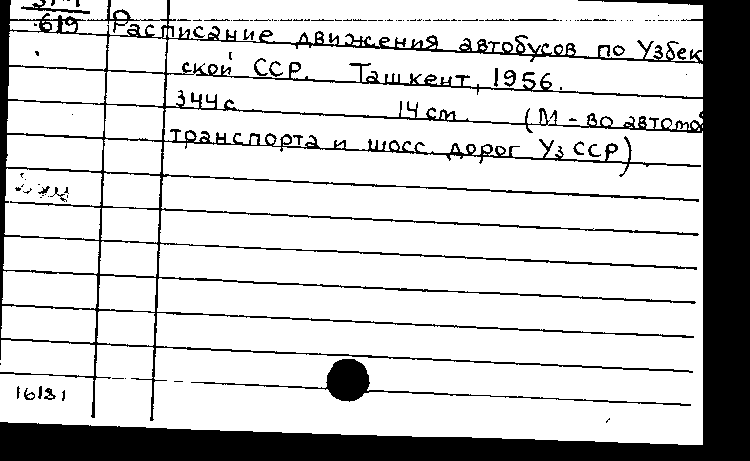 619 Расписание движения автобусов по Узбек
ской ССР. Ташкент, 1956.
344с 14 cm. (М-во автомоб
транспорта и шосс. дорог УзССР).
2 экз
16181